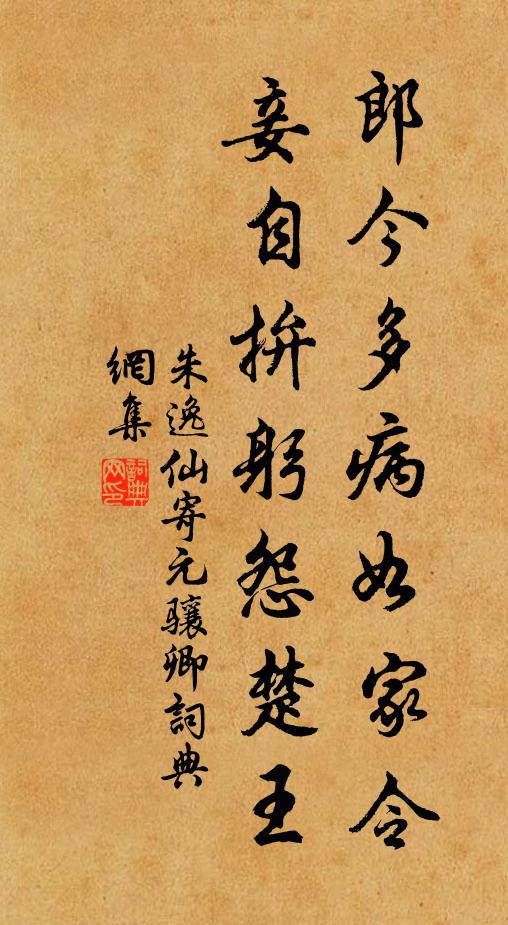 郎今多病如家令
妾自拚躬怨楚王
朱逸仙寄元骧卿詞典
網集
詞典網印